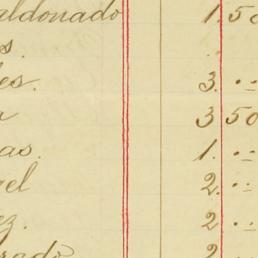 aldonado 1. 50
s. ..
les. 3. ..
a 3 50
as. 1. ..
gel 2. ..
ez. 2 ..
rado 2 ..